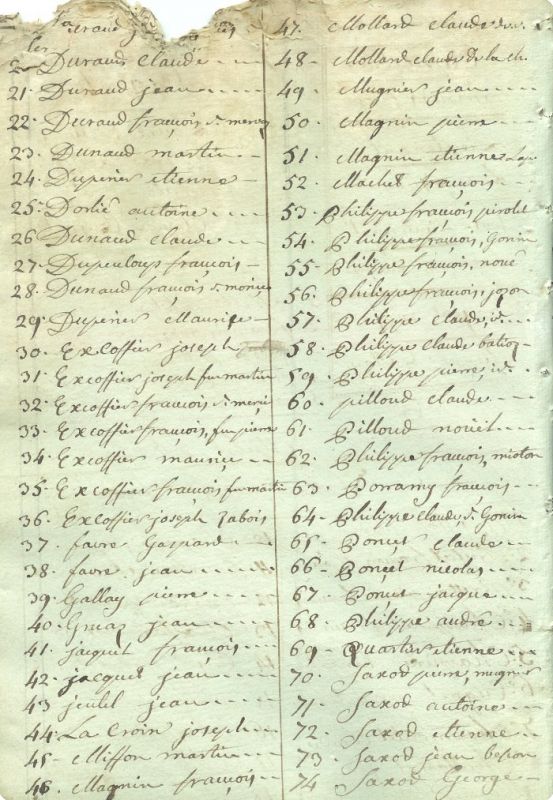 Durand
Durand Claude
21 Durand jean
22 Dunand françois d. mery
23. Dunand martin
24. Duperier etienne
25. Dorlié antoine
26 Dunaud Claude
27. Dupeuloup françois
28. Dunand françois d. moirice
29. Duperier Maurice
30. Excoffier joseph
31 Excoffier joseph fu martin
32. Excoffier françois d. meric
33. Excoffier françois, fu pierre
34 Excoffier maurice
35. Excoffier françois fu martin
36. Excoffier joseph Jabois
37. favre Gaspard
38. favre jean
39. Gallay pierre
40. Gruaz jean
41. jacquet françois
42. jacquet jean
43 jentil jean
44. La Croix joseph
45. Miffon martin
46. Magnin françois
47. Mollard Claude
48. Mollard Claude de la ch.
49. Mugnier jean
50. Magnin pierre
51. Magnin etienne
52. Machet françois
53. Philippe françois pirolet
54. Philippe françois, Gonin
55. Philippe françois, noué
56. Philippe françois, jozon
57. Philippe Claude, id.
58. Philippe Claude batioz
59. Philippe pierre, id.
60. pilloud Claude
61 Pilloud nouèl
62. Philippe françois, mioton
63. Porramy françois
64. Philippe Claude, d. Gonin
65. Ponçet Claude
66. Ponçet nicolas
67. Ponçet jacque
68. Philippe andré
69. Quartier etienne
70. Saxod pierre, mugnier
71. Saxod antoine
72. Saxod etienne
73. Saxod jean besson
74 Saxod George